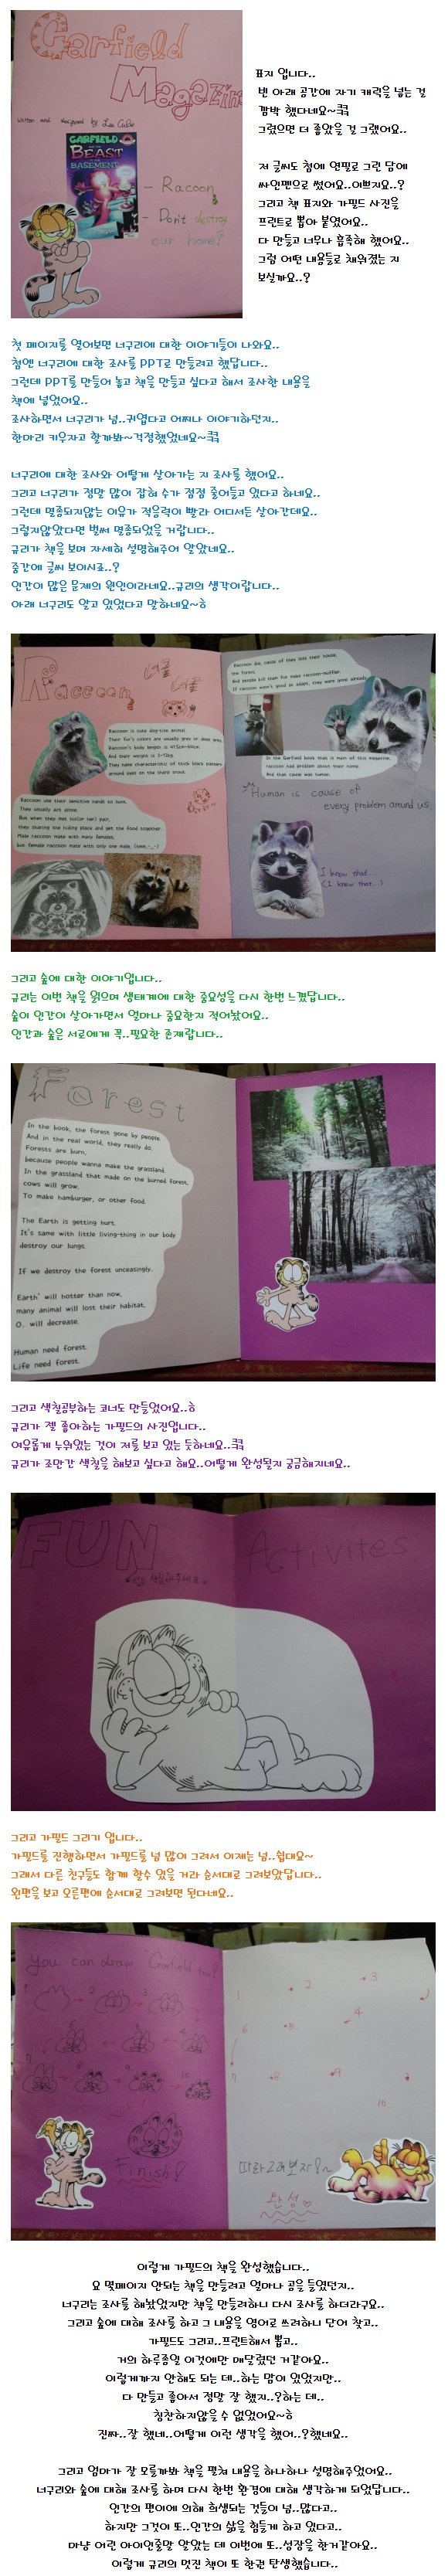 Garfield
Magazine
written and designed by Lee
GARFIELD
BEAST
BASEMENT
- Racoon
&
- Don't destroy
our home!
표지 입니다..
맨 아래 공간에 자기 캐릭을 넣는 걸
깜박 했다네요~ㅋㅋ
그랬으면 더 좋았을 걸 그랬어요..
저 글씨도 첨에 연필로 그린 담에
싸인펜으로 썼어요..이쁘지요..?
그리고 책 표지와 가필드 사진을
프린트로 뽑아 붙였어요..
다 만들고 너무나 흡족해 했어요..
그럼 어떤 내용들로 채워졌는 지
보실까요..?
첫 페이지를 열어보면 너구리에 대한 이야기들이 나와요..
첨엔 너구리에 대한 조사를 PPT로 만들려고 했답니다..
그런데 PPT를 만들어 놓고 책을 만들고 싶다고 해서 조사한 내용을
책에 넣었어요..
조사하면서 너구리가 넘..귀엽다고 어찌나 이야기하던지..
한마리 키우자고 할까봐~걱정했었네요~ㅋㅋ
너구리에 대한 조사와 어떻게 살아가는 지 조사를 했어요..
그리고 너구리가 정말 많이 잡혀 수가 점점 줄어들고 있다고 하네요..
그런데 멸종되지않는 이유가 적응력이 빨라 어디서든 살아간데요..
그렇지않았다면 벌써 멸종되었을 거랍니다..
규리가 책을 보며 자세히 설명해주어 알았네요..
중간에 글씨 보이시죠..?
인간이 많은 문제의 원인이라네요..규리의 생각이랍니다..
아래 너구리도 알고 있었다고 말하네요~ㅎ
Raccoon
너굴
너굴
Raccoon is cute dog-like animal.
Their fur's colors are usually grey or deep grey.
Raccoon's body length is 41.5cm~60cm.
And their weight is 2~12kg.
They have characteristic of thick black pattern
around eyes on the standing snout.
Raccoon use their sensitive hands to hunt.
They usually act alone.
But when they met his(or her) pair,
they sharing the hiding place and get the food together.
Male raccoon mate with many females,
but female raccoon mate with only one male. (hmm.-_-)
Raccoon die, cause of they lost their house,
the forest.
And people kill them for make raccoon-muffler.
If raccoon wasn't good at adapt, they were gone already.
In the Garfield book that is main of this magazine,
raccoon had problem about their home.
And that cause was human.
Human is cause of
every problem around us.
I knew that...
(I knew that...)
그리고 숲에 대한 이야기입니다..
규리는 이번 책을 읽으며 생태계에 대한 중요성을 다시 한번 느꼈답니다..
숲이 인간이 살아가면서 얼마나 중요한지 적어놨어요..
인간과 숲은 서로에게 꼭..필요한 존재랍니다..
Forest
In the book, the forest gone by people.
And in the real world, they really do.
Forests are burn,
because people wanna make the grassland.
In the grassland that made on the burned forest,
cows will grow.
To make hamburger, or other food.
The Earth is getting hurt.
It's same with little living-thing in our body
destroy our lungs.
If we destroy the forest unceasingly,
Earth' will hotter than now,
many animal will lost their habitat,
O₂ will decrease.
Human need forest.
Life need forest.
그리고 색칠공부하는 코너도 만들었어요..ㅎ
규리가 젤 좋아하는 가필드의 사진입니다..
여유롭게 누워있는 것이 저를 보고 있는 듯하네요..ㅋㅋ
규리가 조만간 색칠을 해보고 싶다고 해요..어떻게 완성될지 궁금해지네요..
FUN Activites
그리고 가필드 그리기 입니다..
가필드를 진행하면서 가필드를 넘 많이 그려서 이제는 넘..쉽대요~
그래서 다른 친구들도 함께 할수 있을 거라 순서대로 그려보았답니다..
왼편을 보고 오른편에 순서대로 그려보면 된다네요..
You can draw Garfield too!
1 2 3
6 5 4
7 8 9 10
Finish!
1 2 3
6 5 4
7 8 9
10
따라 그려보자!~
완성♡
이렇게 가필드의 책을 완성했습니다..
요 몇페이지 안되는 책을 만들려고 얼마나 공을 들였던지..
너구리는 조사를 해놨었지만 책을 만들려하니 다시 조사를 하더라구요..
그리고 숲에 대해 조사를 하고 그 내용을 영어로 쓰려하니 단어 찾고..
가필드도 그리고..프린트해서 뽑고..
거의 하루종일 이것에만 매달렸던 거같아요..
이렇게까지 안해도 되는 데..하는 맘이 있었지만..
다 만들고 좋아서 정말 잘 했지..?하는 데..
칭찬하지않을 수 없었어요~ㅎ
진짜..잘 했네..어떻게 이런 생각을 했어..?했네요..
그리고 엄마가 잘 모를까봐 책을 펼쳐 내용을 하나하나 설명해주었어요..
너구리와 숲에 대해 조사를 하며 다시 한번 환경에 대해 생각하게 되었답니다..
인간의 편이에 의해 희생되는 것들이 넘..많다고..
하지만 그것이 또..인간의 삶을 힘들게 하고 있다고..
마냥 어린 아이인줄말 알았는 데 이번에 또..성장을 한거같아요..
이렇게 규리의 멋진 책이 또 한권 탄생했습니다..